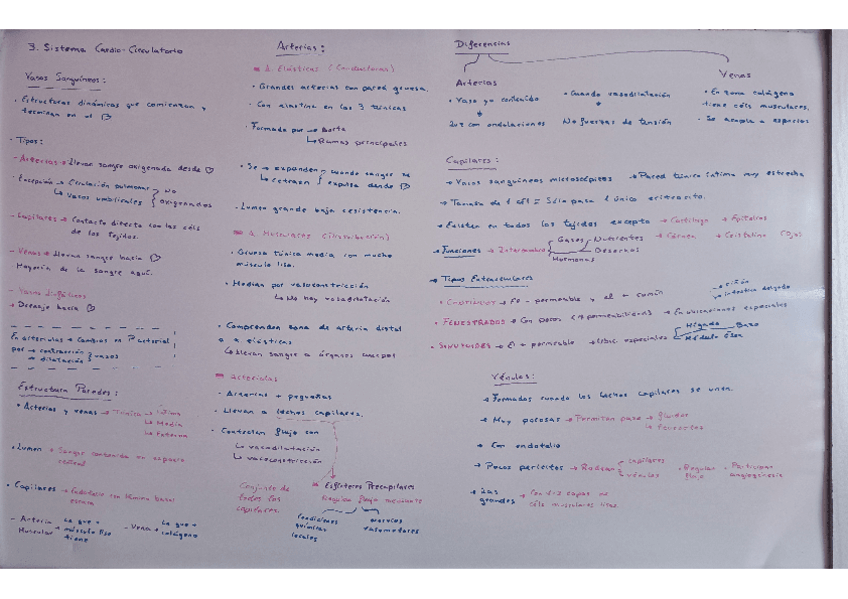 3. Sistema Cardio-Circulatorio
Vasos Sanguíneos:
· Estructuras dinámicas que comienzan y
terminan en el ♡
· Tipos:
- Arterias → Llevan sangre oxigenada desde ♡
· Excepción → Circulación pulmonar
↳ Vasos umbilicales
No
oxigenados
- Capilares → Contacto directo con las céls
de los tejidos.
- Venas → Llevan sangre hacia ♡
Mayoría de la sangre aquí.
- Vasos linfáticos
→ Drenaje hacia ♡
En arteriolas → Cambios en P arterial
por → contracción
→ dilatación
vasos
Estructura Paredes:
· Arterias y venas → Túnica → Íntima
↳ Media
↳ Externa
· Lumen → Sangre contenida en espacio
central
· Capilares → Endotelio con lámina basal
escasa
- Arteria Muscular → La que + músculo liso tiene
- Vena → La que + colágeno
Arterias:
A. Elásticas (Conductoras)
· Grandes arterias con pared gruesa.
· Con elastina en las 3 túnicas
· Formada por → Aorta
↳ Ramas principales
· Se → expanden
↳ retraen
cuando sangre se
expulsa desde ♡
· Lumen grande baja resistencia.
A. Musculares (Distribución)
· Gruesa túnica media con mucho
músculo liso.
· Median por vasoconstricción
↳ No hay vasodilatación
· Comprenden zona de arteria distal
a a elásticas
↳ Llevan sangre a órganos cuerpo
Arteriolas
· Arterias + pequeñas
· Llevan a lechos capilares.
· Controlan flujo con
↳ vasodilatación
↳ vasoconstricción
Conjunto de
todos los
capilares.
Esfínteres Precapilares
Regulan flujo mediante
Condiciones
químicas
locales
Nervios
vasomotores
Diferencias
Arterias
· Vaso ya contraído
Luz con ondulaciones
· Cuando vasodilatación
No fuerzas de tensión
Venas
· En zona colágeno
tiene céls musculares.
· Se acopla a espacios
Capilares:
→ Vasos sanguíneos microscópicos
→ Pared túnica íntima muy estrecha
→ Tamaño de 1 cél = Sólo para 1 único eritrocito.
→ Existen en todos los tejidos excepto → Cartílago → Epitelios
→ Córnea → Cristalino (Ojo)
→ Funciones → Intercambio
Gases
Nutrientes
Desechos
Hormonas
→ Tipos Estructurales
· CONTINUOS → Poco permeable y el + común
· FENESTRADOS → Con poros (↑ permeabilidad) → En ubicaciones especiales
→ riñón
→ intestino delgado
· SINUSOIDES → El + permeable → Ubic especiales
Hígado
Bazo
Médula Ósea
Vénulas:
→ Formados cuando los lechos capilares se unen.
→ Muy porosas → Permiten paso → fluidos
→ leucocitos
→ Con endotelio
→ Pocos pericitos → Rodean
capilares
vénulas
· Regular
flujo
· Participan
angiogénesis
→ Las
grandes
→ Con 1-2 capas de
céls musculares lisas